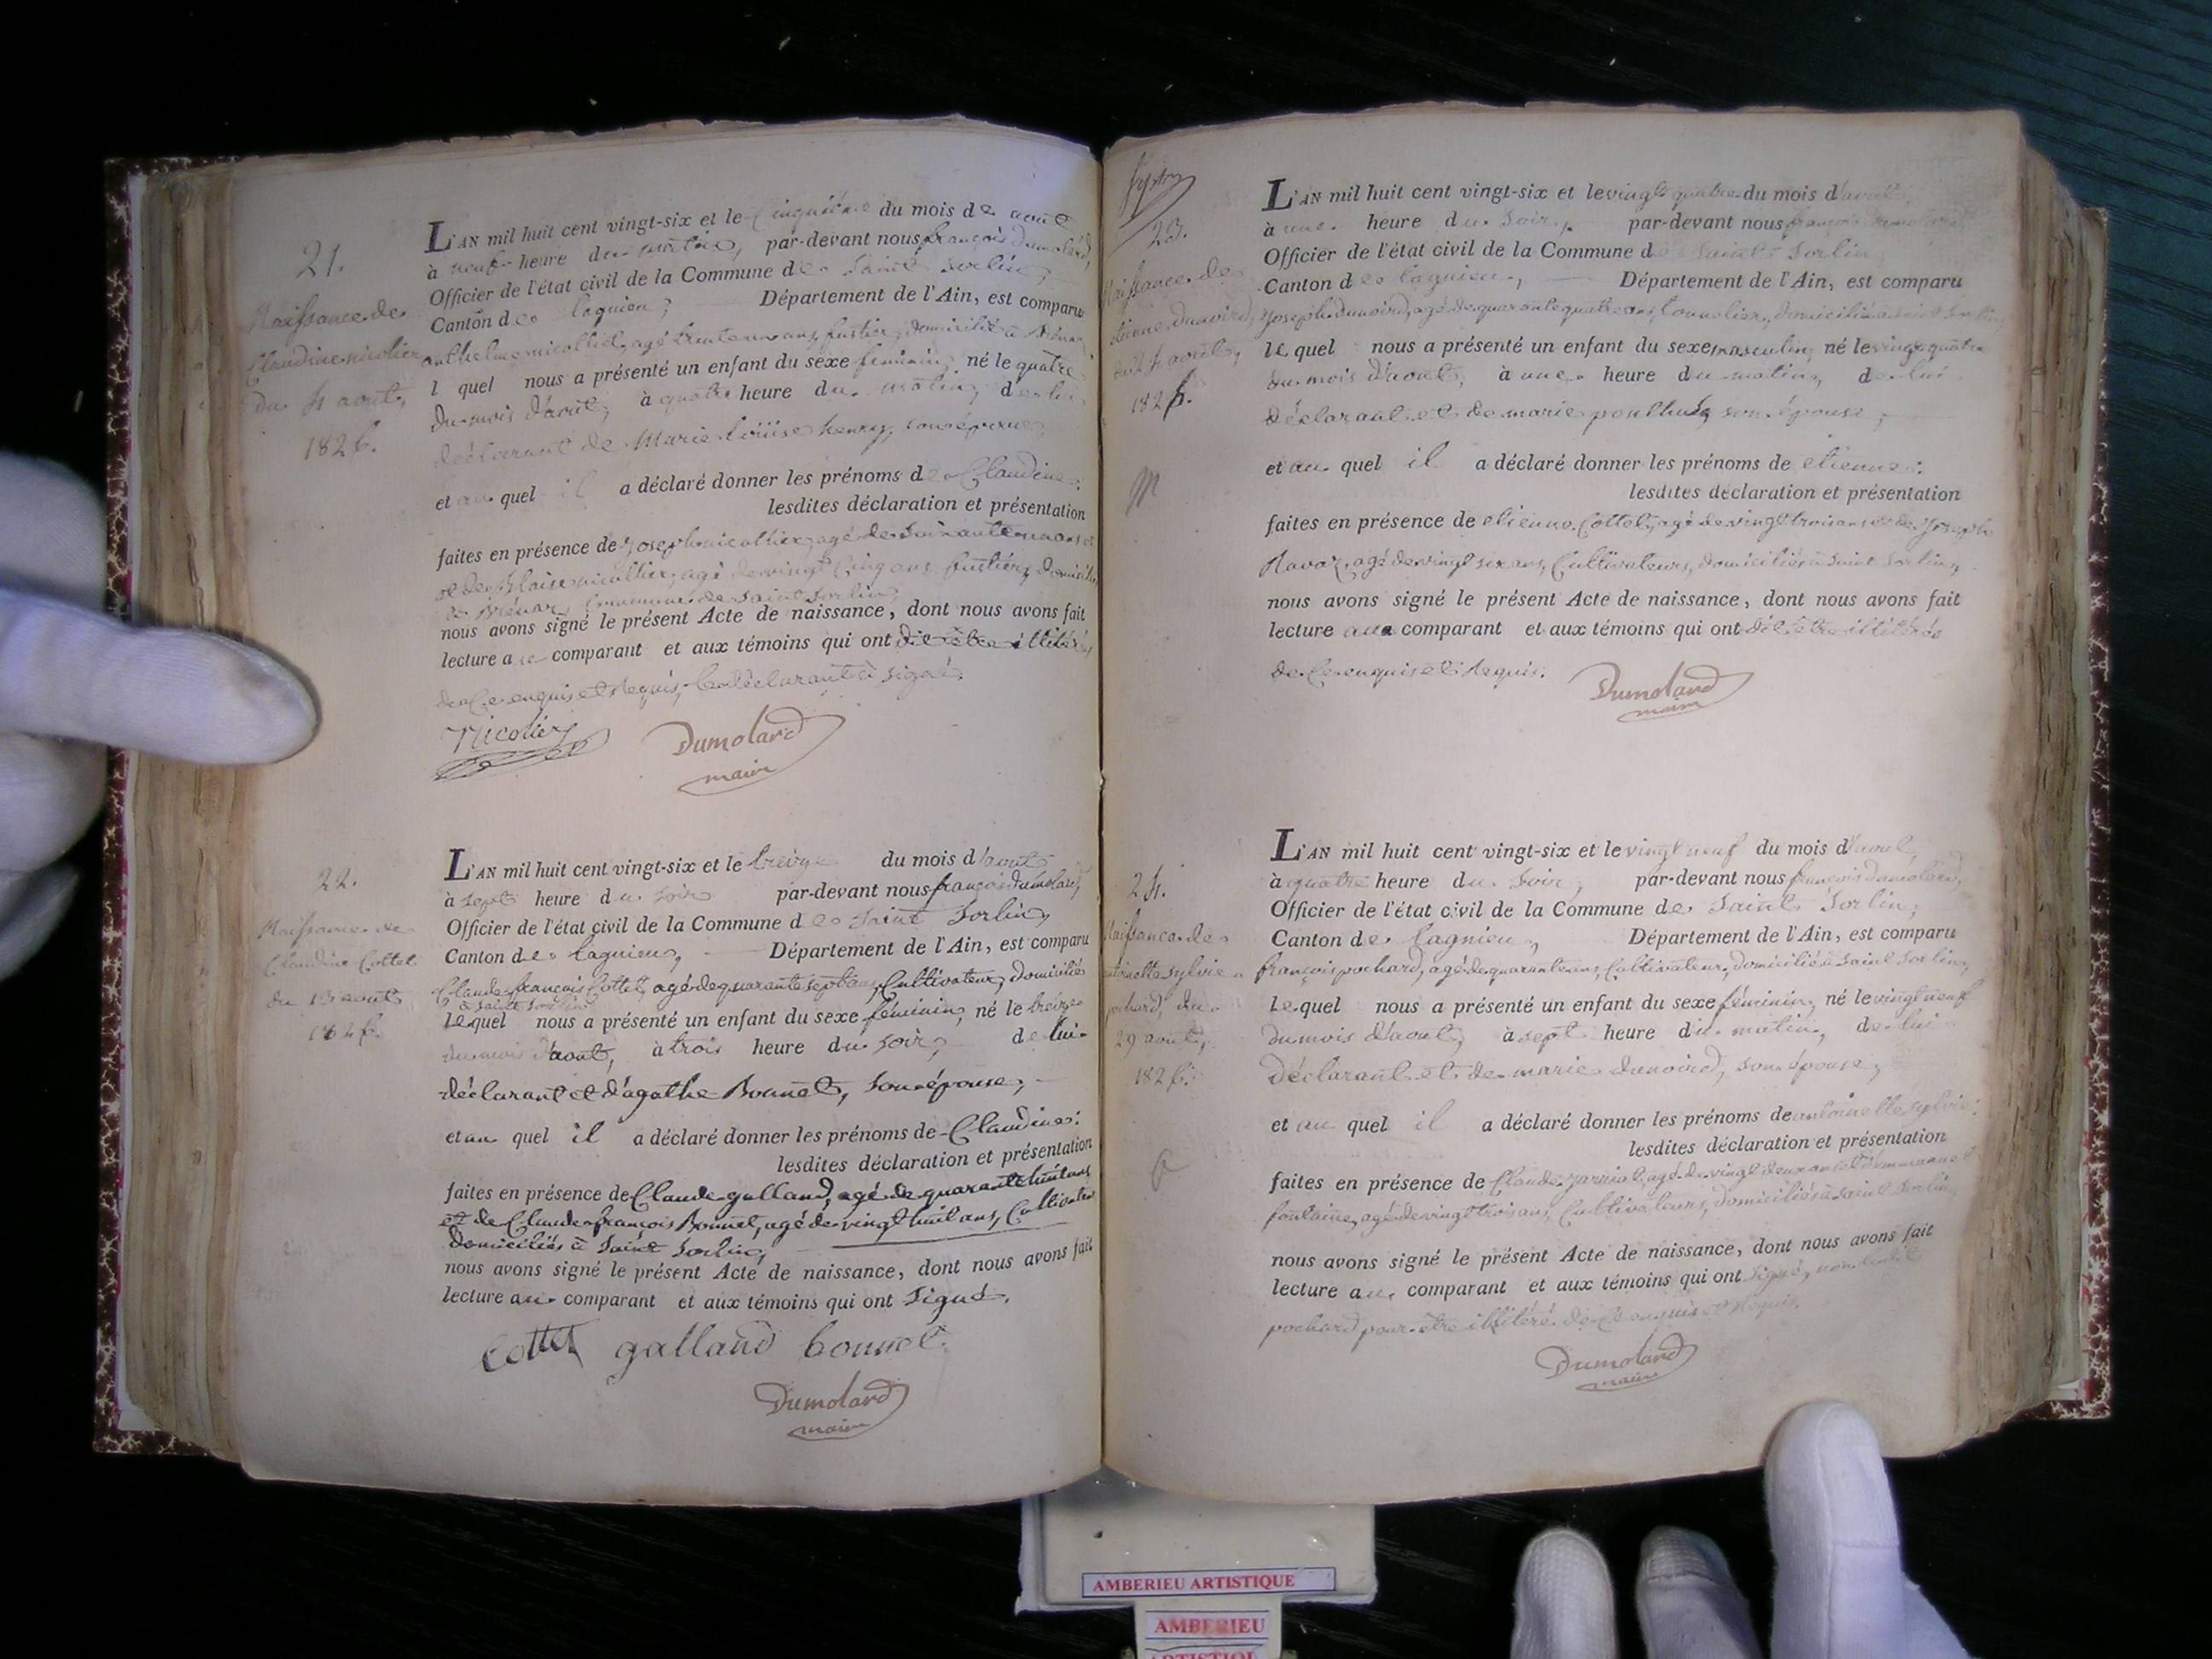 21.
Naissance de
Claudine nicolier
du 4 août,
1826.
L'AN mil huit cent vingt-six et le cinquième du mois de août
à neuf heure du matin, par-devant nous françois Dumolard,
Officier de l'état civil de la Commune de Saint Sorlin,
Canton de lagnieu, Département de l'Ain, est comparu
anthelme nicollier, agé trente ans, fustier, domicilié à
l quel nous a présenté un enfant du sexe feminin, né le quatre
du mois d'août, à quatre heure du matin, de lui
déclarant de Marie Louise henry, son épouse,
et au quel il a déclaré donner les prénoms de Claudine:
lesdites déclaration et présentation
faites en présence de Joseph nicollier, agé de soixante ans
et de Blaise nicollier, agé de vingt cinq ans, fustiers, domiciliés
commune de Saint Sorlin,
nous avons signé le présent Acte de naissance, dont nous avons fait
lecture au comparant et aux témoins qui ont dit être illitérés
de ce enquis et requis, le déclarant à signé.
Nicolier Dumolard
maire
22.
Naissance de
Claudine Cottet
du 13 août
1826.
L'AN mil huit cent vingt-six et le treize du mois d'août
à sept heure du soir par-devant nous françois dumolard,
Officier de l'état civil de la Commune de Saint Sorlin,
Canton de lagnieu, Département de l'Ain, est comparu
Claude françois Cottet, agé de quarante sept ans, Cultivateur, domicilié
à saint sorlin
Lequel nous a présenté un enfant du sexe féminin, né le treize
du mois d'août, à trois heure du soir, de lui
déclarant et d'agathe Bonnet, son épouse,
et au quel il a déclaré donner les prénoms de Claudine:
lesdites déclaration et présentation
faites en présence de Claude galland, agé de quarante huit ans
et de Claude françois Bonnet, agé de vingt huit ans, Cultivateurs
domiciliés à Saint Sorlin,
nous avons signé le présent Acte de naissance, dont nous avons fait
lecture au comparant et aux témoins qui ont signé.
Cottet galland bonnet
Dumolard
maire
23.
Naissance de
étienne dunoird,
du 24 août,
1826.
M
L'AN mil huit cent vingt-six et le vingt quatre du mois d'août,
à une heure du soir, par-devant nous françois dumolard
Officier de l'état civil de la Commune de Saint Sorlin
Canton de lagnieu, Département de l'Ain, est comparu
Joseph dunoird, agé de quarante quatre ans, tonnelier, domicilié à saint Sorlin,
le quel nous a présenté un enfant du sexe masculin, né le vingt quatre
du mois d'août, à une heure du matin, de lui
déclarant et de marie son épouse,
et au quel il a déclaré donner les prénoms de étienne:
lesdites déclaration et présentation
faites en présence de étienne Cottet, agé de vingt trois ans et de Joseph
Navaz, agé de vingt six ans, Cultivateurs, domiciliés à Saint Sorlin,
nous avons signé le présent Acte de naissance, dont nous avons fait
lecture au comparant et aux témoins qui ont dit être illitérés
de ce enquis et requis.
Dumolard
maire
24.
Naissance de
antoinette sylvie
pochard, du
29 août,
1826.
L'AN mil huit cent vingt-six et le vingt neuf du mois d'août
à quatre heure du soir, par-devant nous françois dumolard,
Officier de l'état civil de la Commune de Saint Sorlin,
Canton de lagnieu, Département de l'Ain, est comparu
françois pochard, agé de quarante ans, Cultivateur, domicilié à Saint Sorlin,
Le quel nous a présenté un enfant du sexe féminin, né le vingt neuf
du mois d'août, à sept heure du matin, de lui
déclarant et de marie dunoird, son épouse,
et au quel il a déclaré donner les prénoms de antoinette sylvie:
lesdites déclaration et présentation
faites en présence de Claude agé de vingt deux ans et d'emmanuel
fontaine, agé de vingt trois ans, Cultivateurs, domiciliés à Saint Sorlin
nous avons signé le présent Acte de naissance, dont nous avons fait
lecture au comparant et aux témoins qui ont signé, non ledit
pochard pour être illitéré de ce enquis et requis.
Dumolard
maire
AMBERIEU ARTISTIQUE
AMBERIEU
ARTISTIQUE